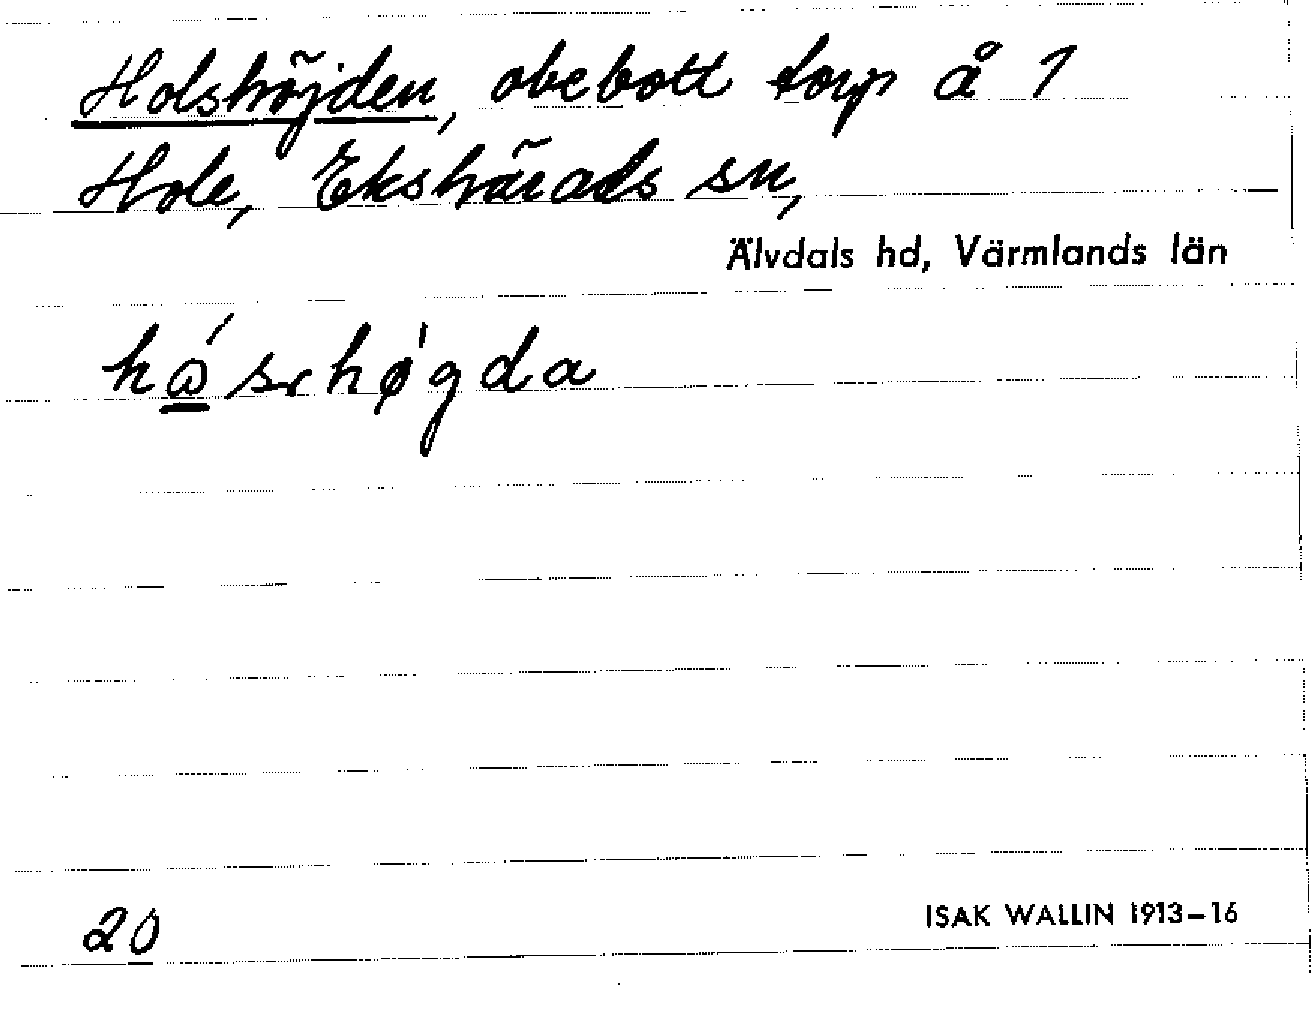 Holshöjden, obebott torp å 1
Hole, Ekshärads sn,
Älvdals hd, Värmlands län
20
ISAK WALLIN 1913–16